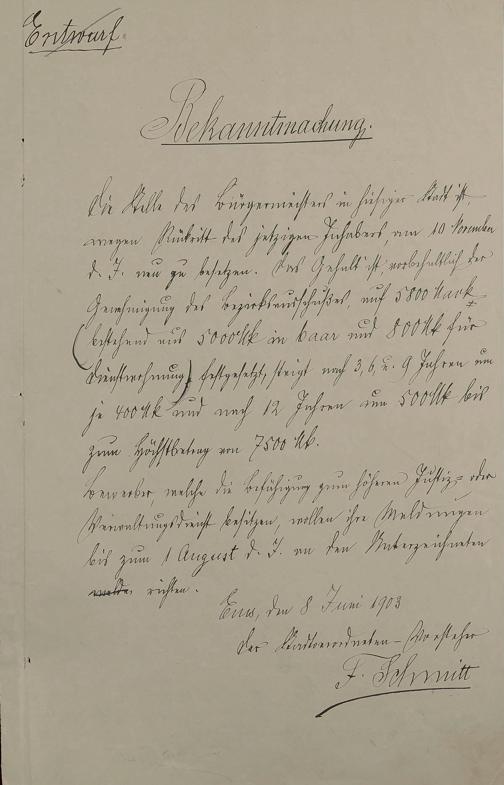 Entwurf.
Bekanntmachung.
Die Stelle des Bürgermeisters in hiesiger Stadt ist,
wegen Rücktritt des jetzigen Inhabers, am 10 November
d. J. neu zu besetzen. Das Gehalt ist vorbehaltlich der
Genehmigung des Bezirksausschußes auf 5800 Mark
(bestehend aus 5000 Mk in baar und 800 Mk für
Dienstwohnung) festgesetzt, steigt nach 3, 6, u. 9 Jahren um
je 400 Mk und nach 12 Jahren um 500 Mk bis
zum Höchstbetrag von 7500 Mk.
Bewerber, welche die Befähigung zum höheren Justiz- oder
Verwaltungsdienst besitzen, wollen ihre Meldungen
bis zum 1 August d. J. an den Unterzeichneten
richten.
Ems, den 8 Juni 1903
Der Stadtverordneten-Vorsteher
F. Schmitt